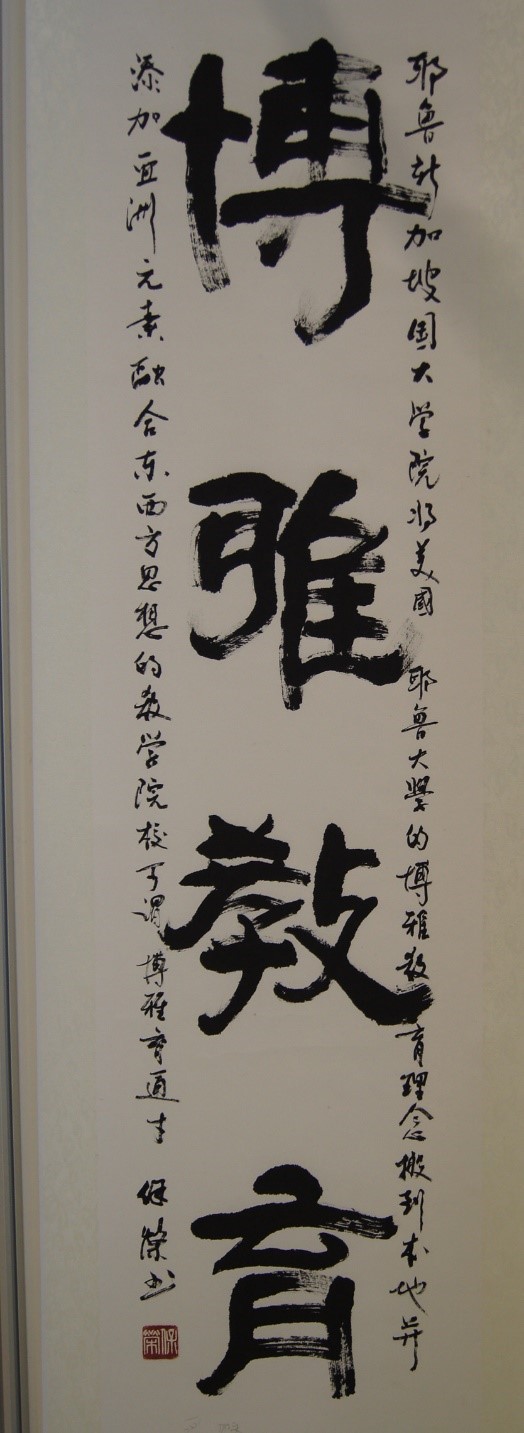 耶鲁新加坡国大学院将美國耶鲁大學的博雅教育理念搬到本地并
博雅教育
添加亚洲元素融合东西方思想的教学院校可谓博雅育通
保榮书
保榮